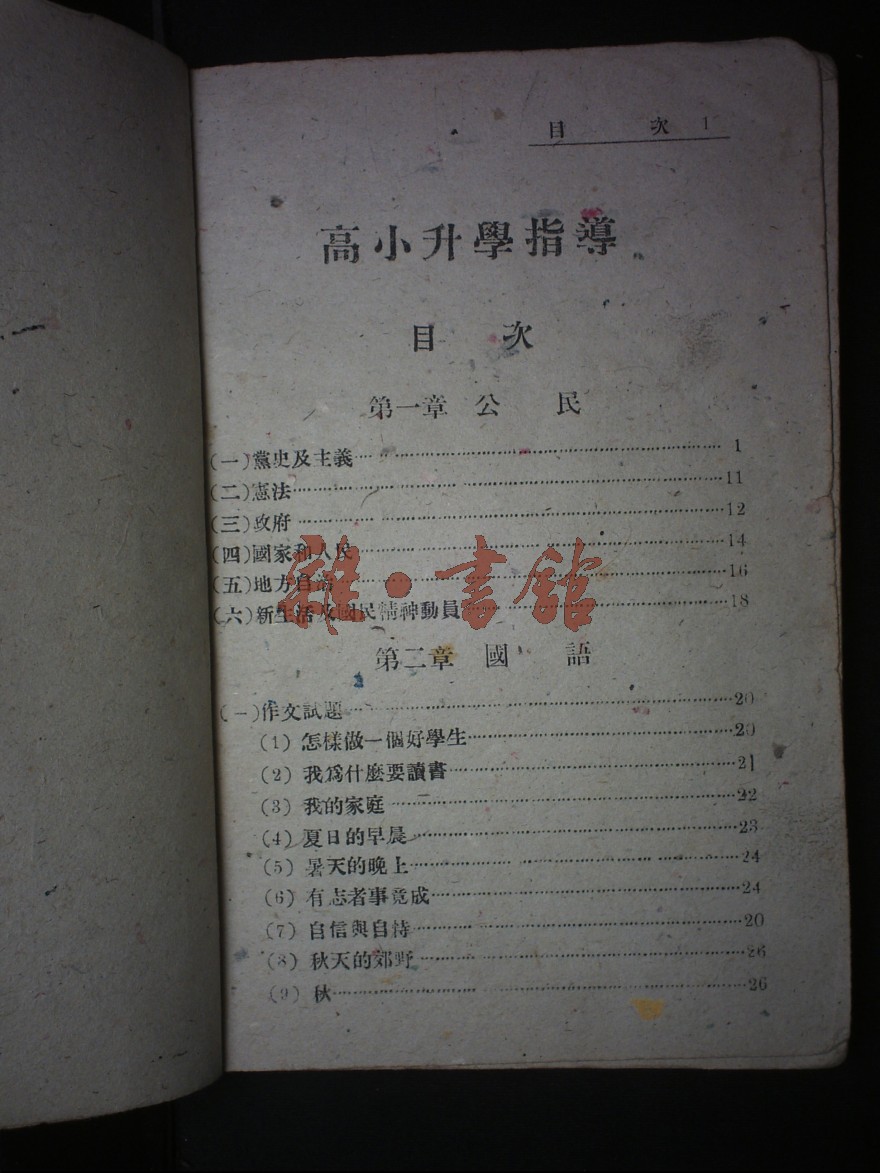 目 次 1
高小升學指導
目 次
第一章 公 民
(一)黨史及主義……1
(二)憲法……11
(三)政府……12
(四)國家和人民……14
(五)地方自治……16
(六)新生活及國民精神動員……18
雜·書館
第二章 國 語
(一)作文試題……20
(1) 怎樣做一個好學生……20
(2) 我爲什麼要讀書……21
(3) 我的家庭……22
(4) 夏日的早晨……23
(5) 暑天的晚上……24
(6) 有志者事竟成……24
(7) 自信與自恃……20
(8) 秋天的郊野……26
(9) 秋……26